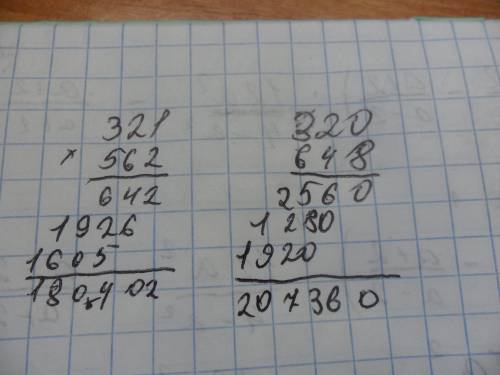 321
× 562
642
1926
1605
180402
320
648
2560
1280
1920
207360